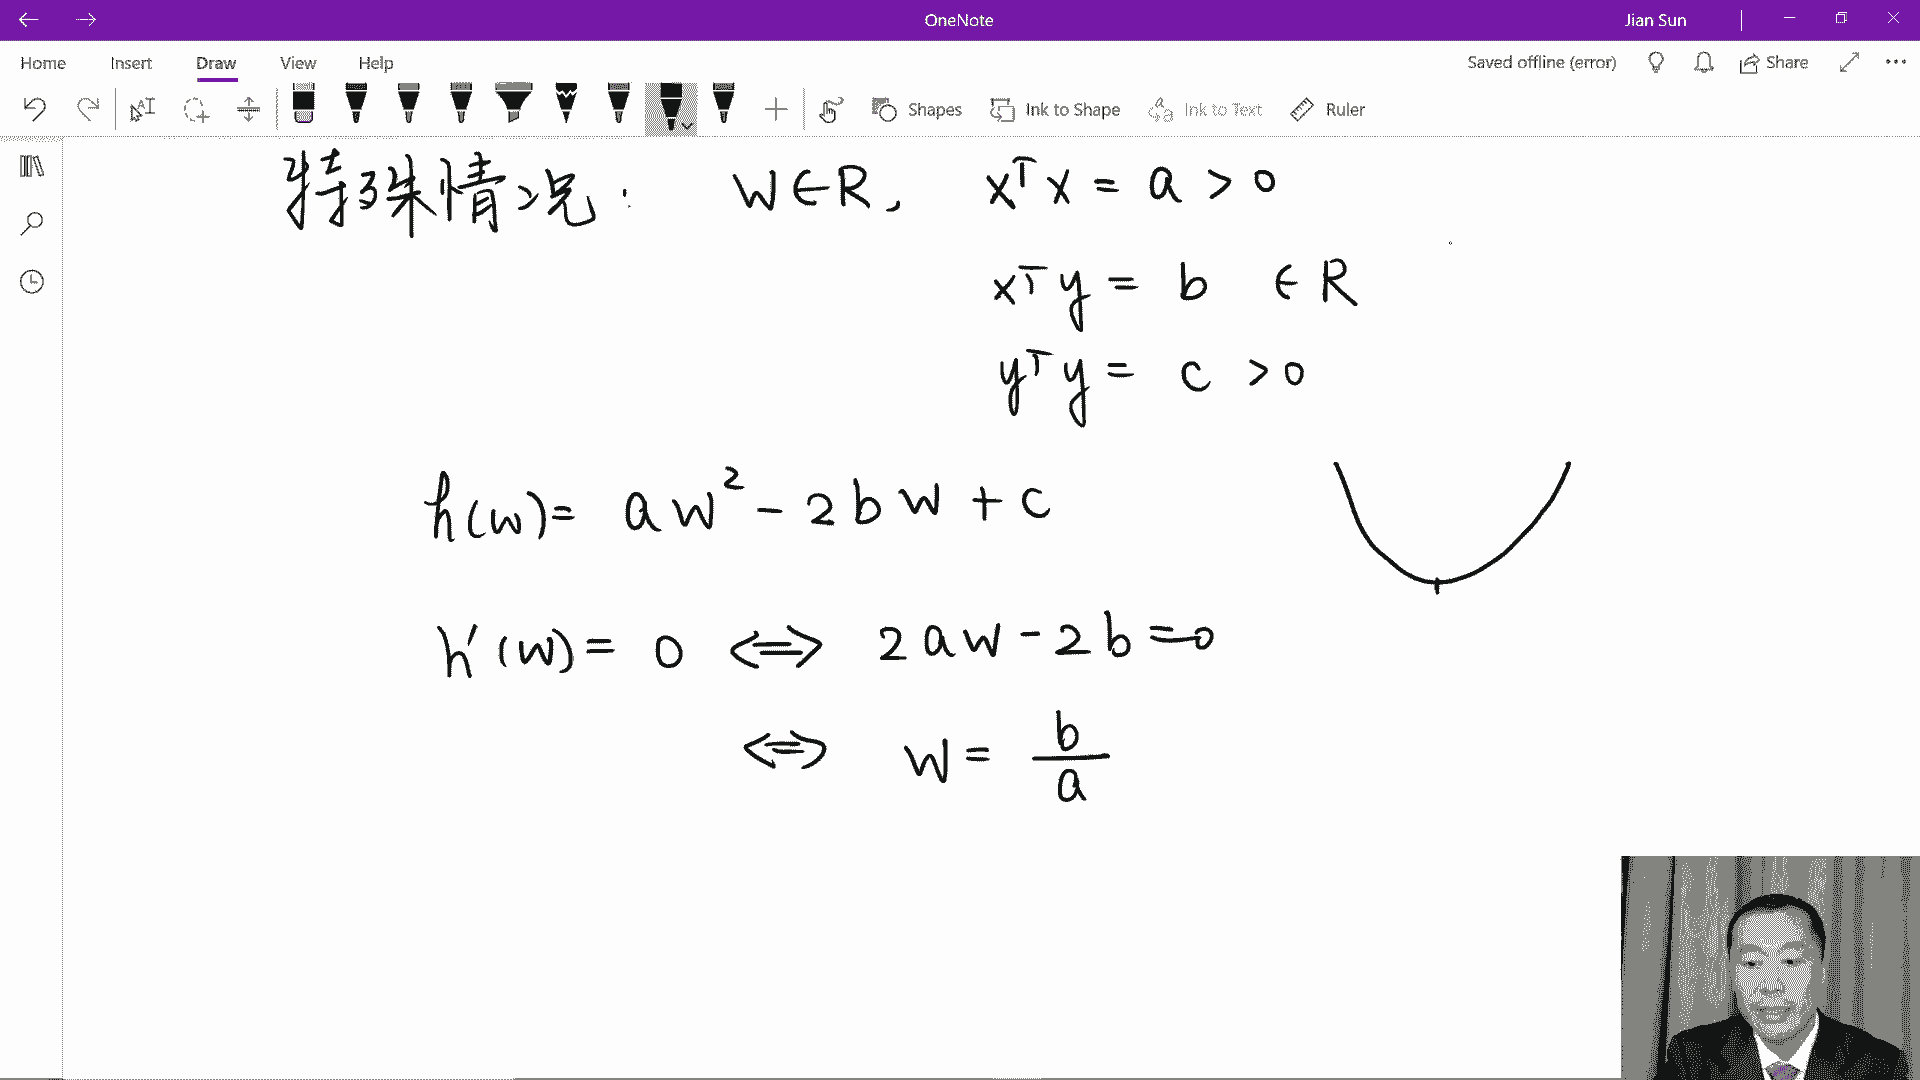 OneNote
Jian Sun
Home Insert Draw View Help
Saved offline (error) Share
Shapes Ink to Shape Ink to Text Ruler
特殊情况: W∈R, xᵀx = a > 0
xᵀy = b ∈ R
yᵀy = c > 0
h(w) = aw² - 2bw + c
h'(w) = 0 ⟺ 2aw - 2b = 0
⟺ w = b/a